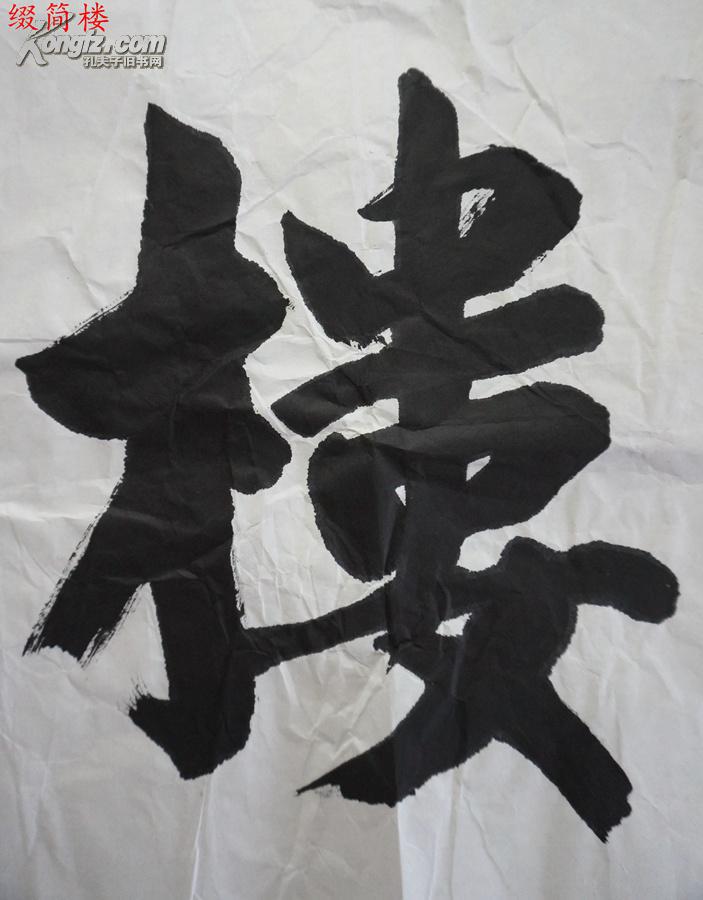 缀简楼
Kongfz.com
孔夫子旧书网
樓